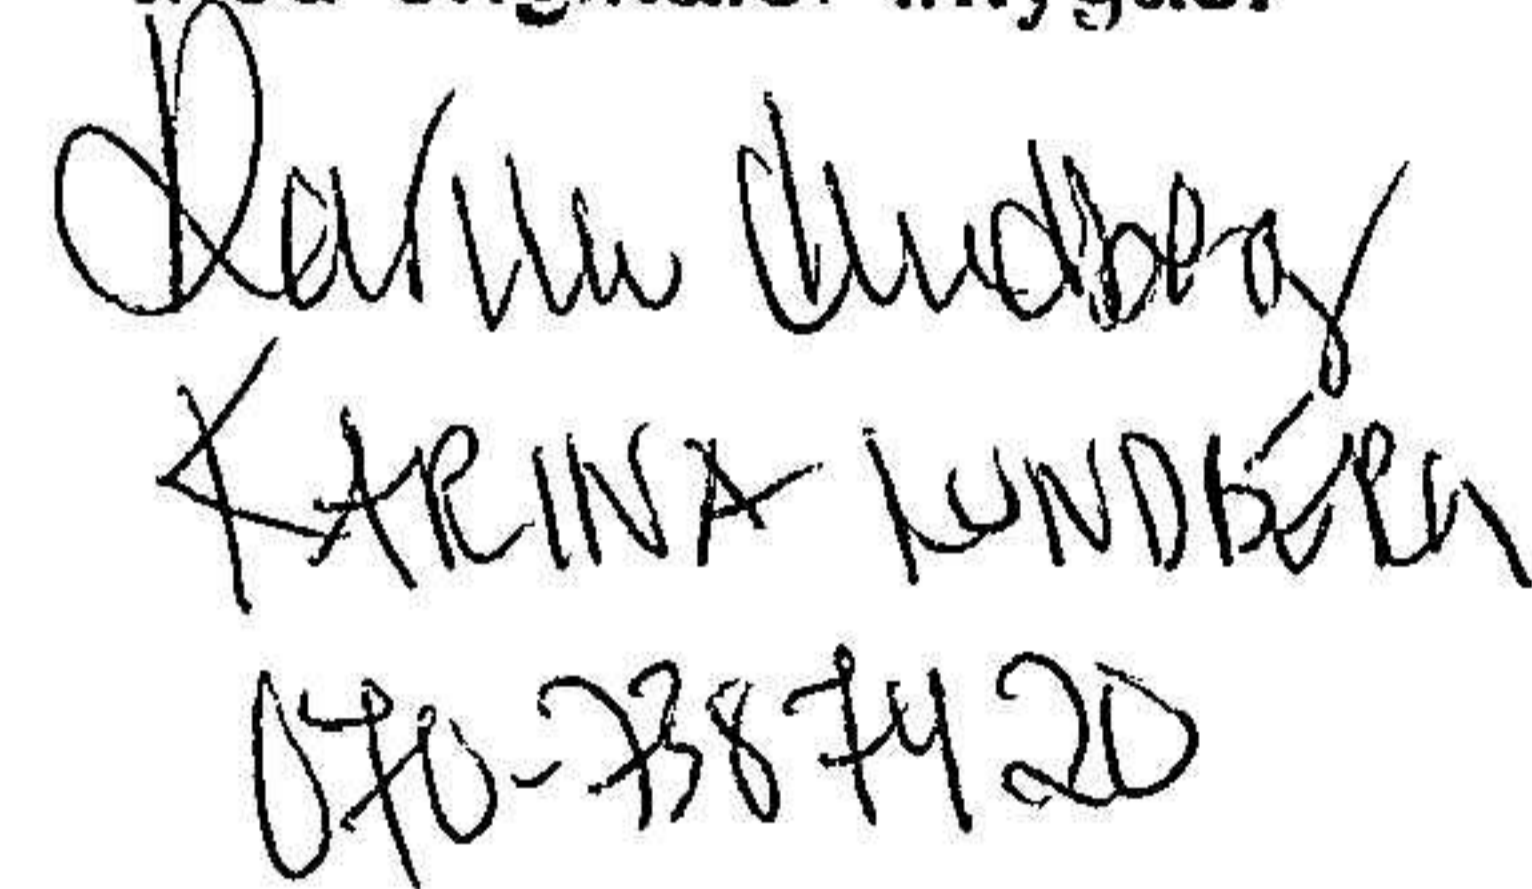 Karina Lundberg
KARINA LUNDBERG
070-7387420